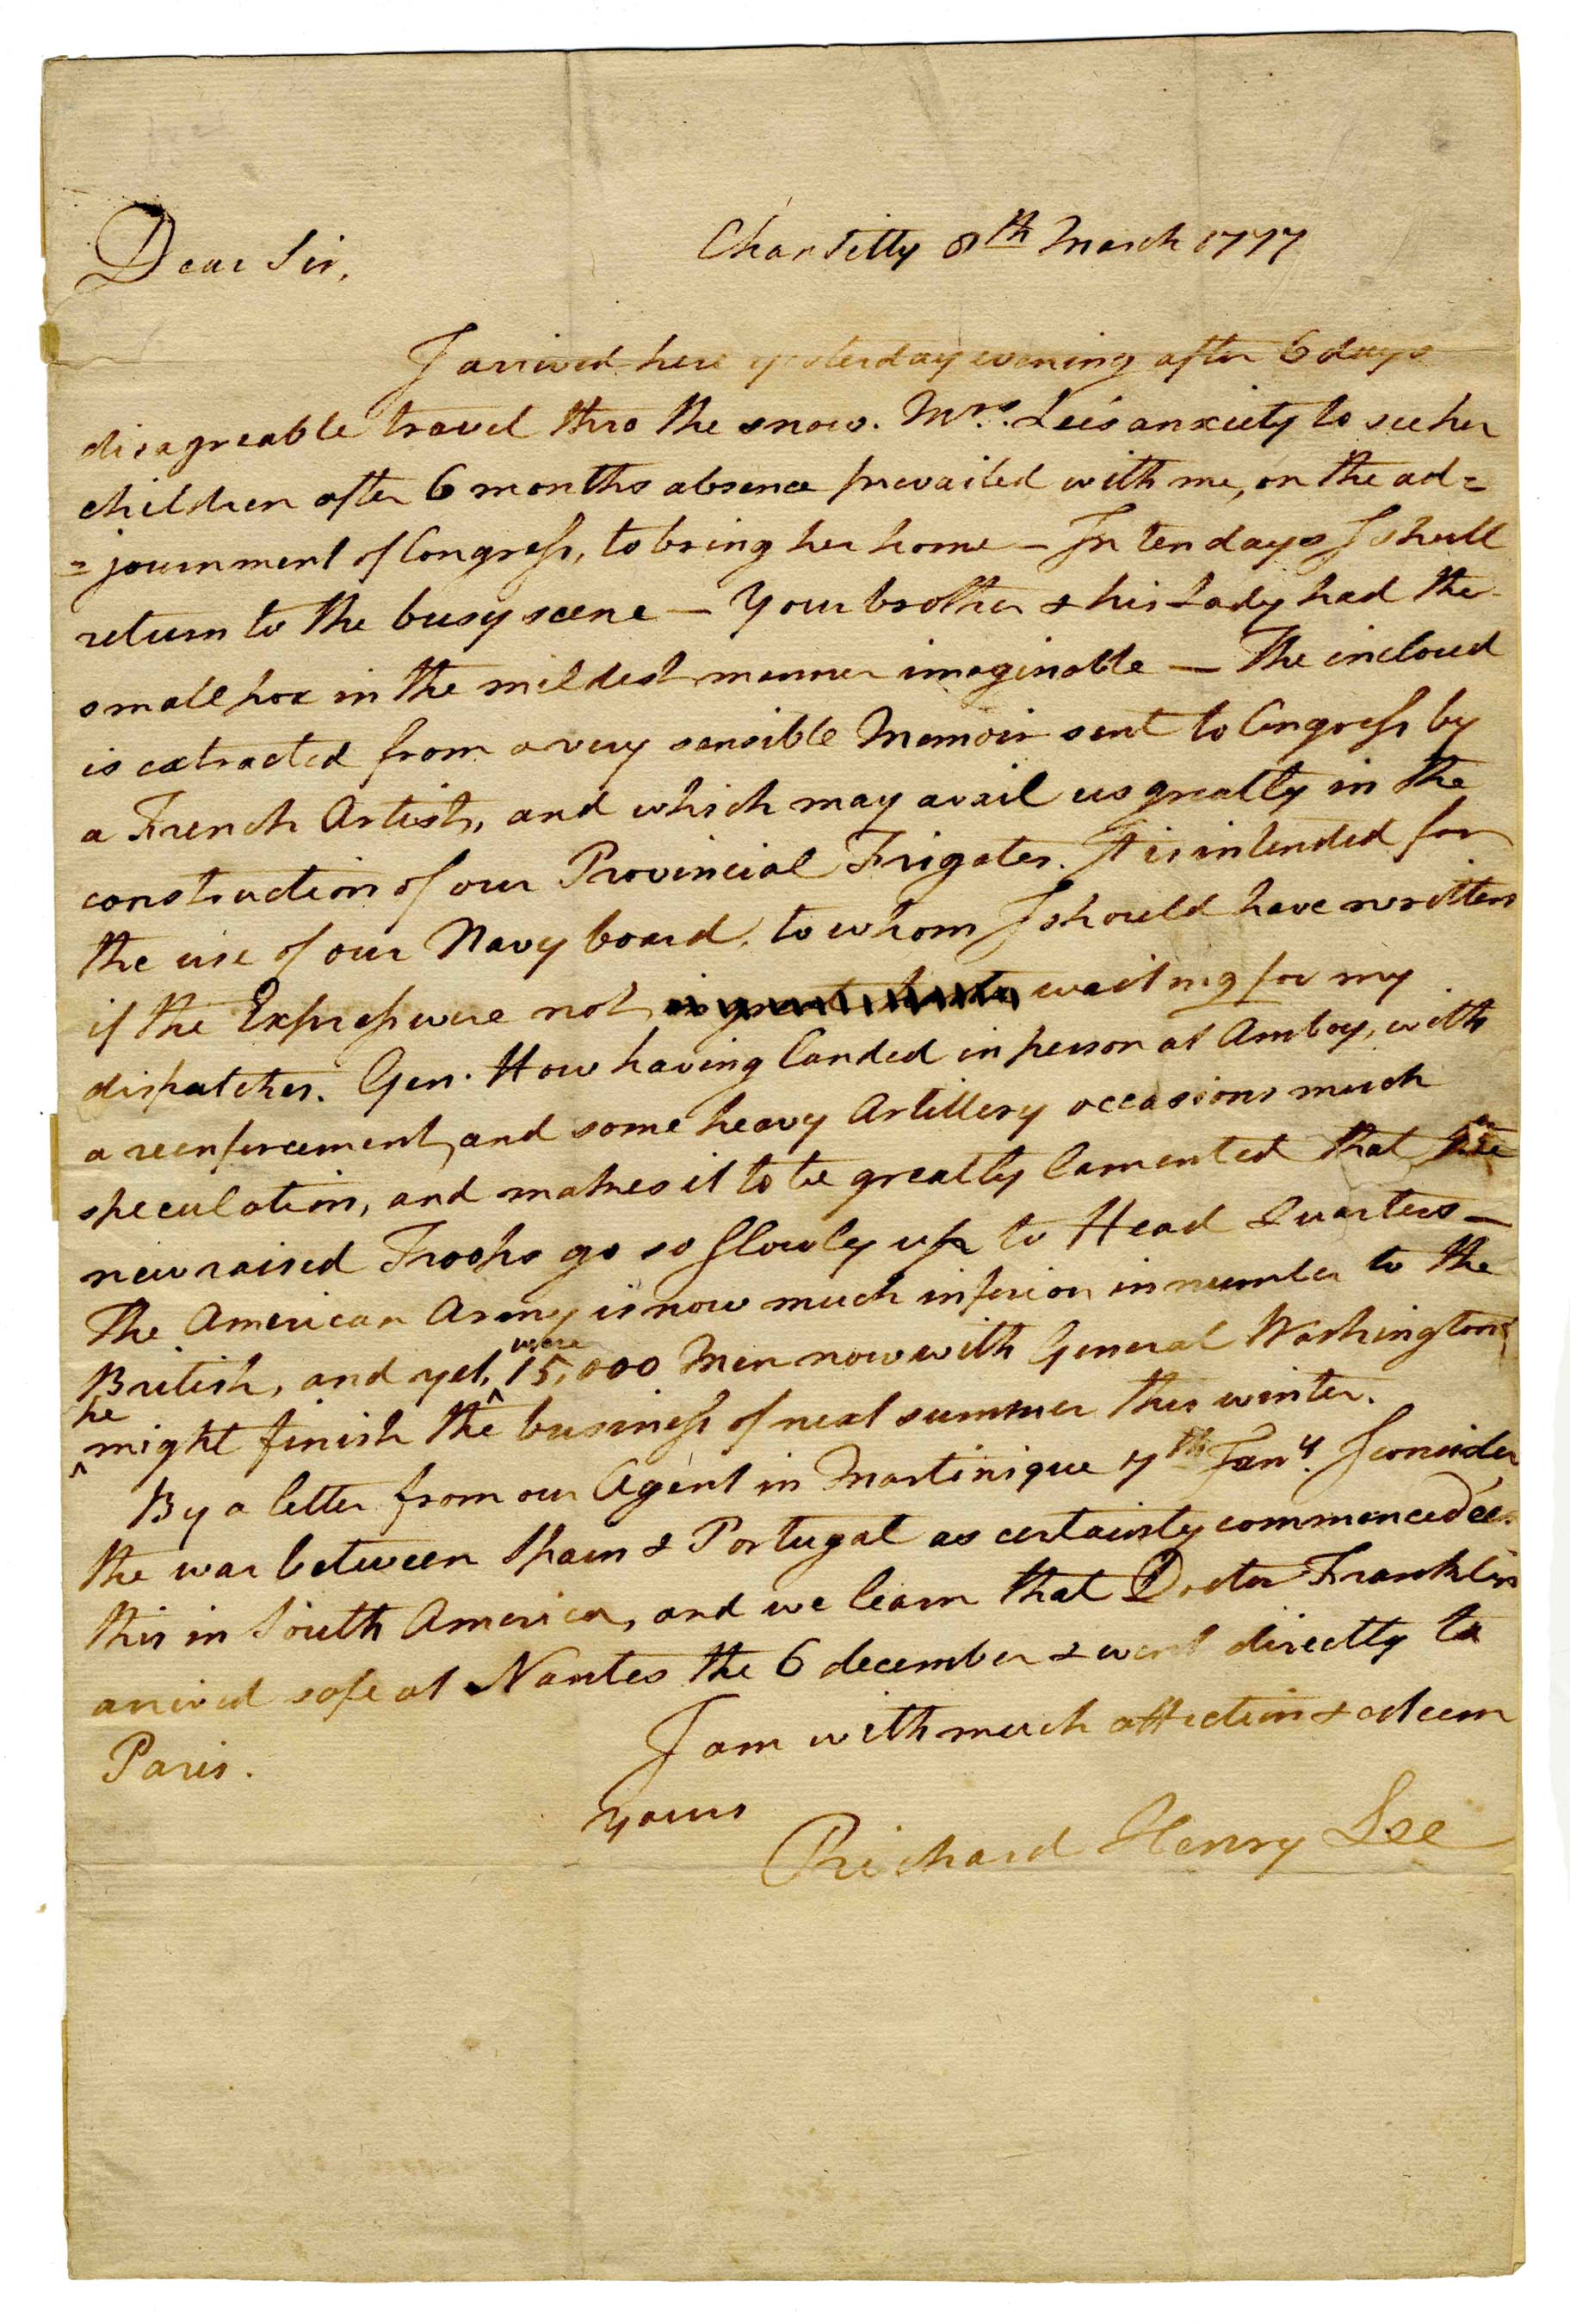 Chantilly 8th March 1777
Dear Sir,
I arrived here yesterday evening after 6 days
disagreable travel thro the snow. Mrs. Lee's anxiety to see her
children after 6 months absence prevailed with me, on the ad=
=journment of Congress, to bring her home — In ten days I shall
return to the busy scene — Your brother & his Lady had the
small pox in the mildest manner imaginable — The inclosed
is extracted from a very sensible Memoir sent to Congress by
a French Artist, and which may avail us greatly in the
construction of our Provincial Frigates. It is intended for
the use of our Navy board, to whom I should have written
if the Express were not waiting for my
dispatches. Gen. How having landed in person at Amboy, with
a reenforcement, and some heavy Artillery occasions much
speculation, and makes it to be greatly lamented that our
new raised Troops go so slowly up to Head Quarters —
The American Army is now much inferior in number to the
British, and yet, were 15,000 Men now with General Washington
he might finish the business of next summer this winter.
By a letter from our Agent in Martinique 7th Jany. I consider
the war between Spain & Portugal as certainly commenced ere
this in South America, and we learn that Doctor Franklin
arrived safe at Nantes the 6 december & went directly to
Paris.
I am with much affection & esteem
yours
Richard Henry Lee